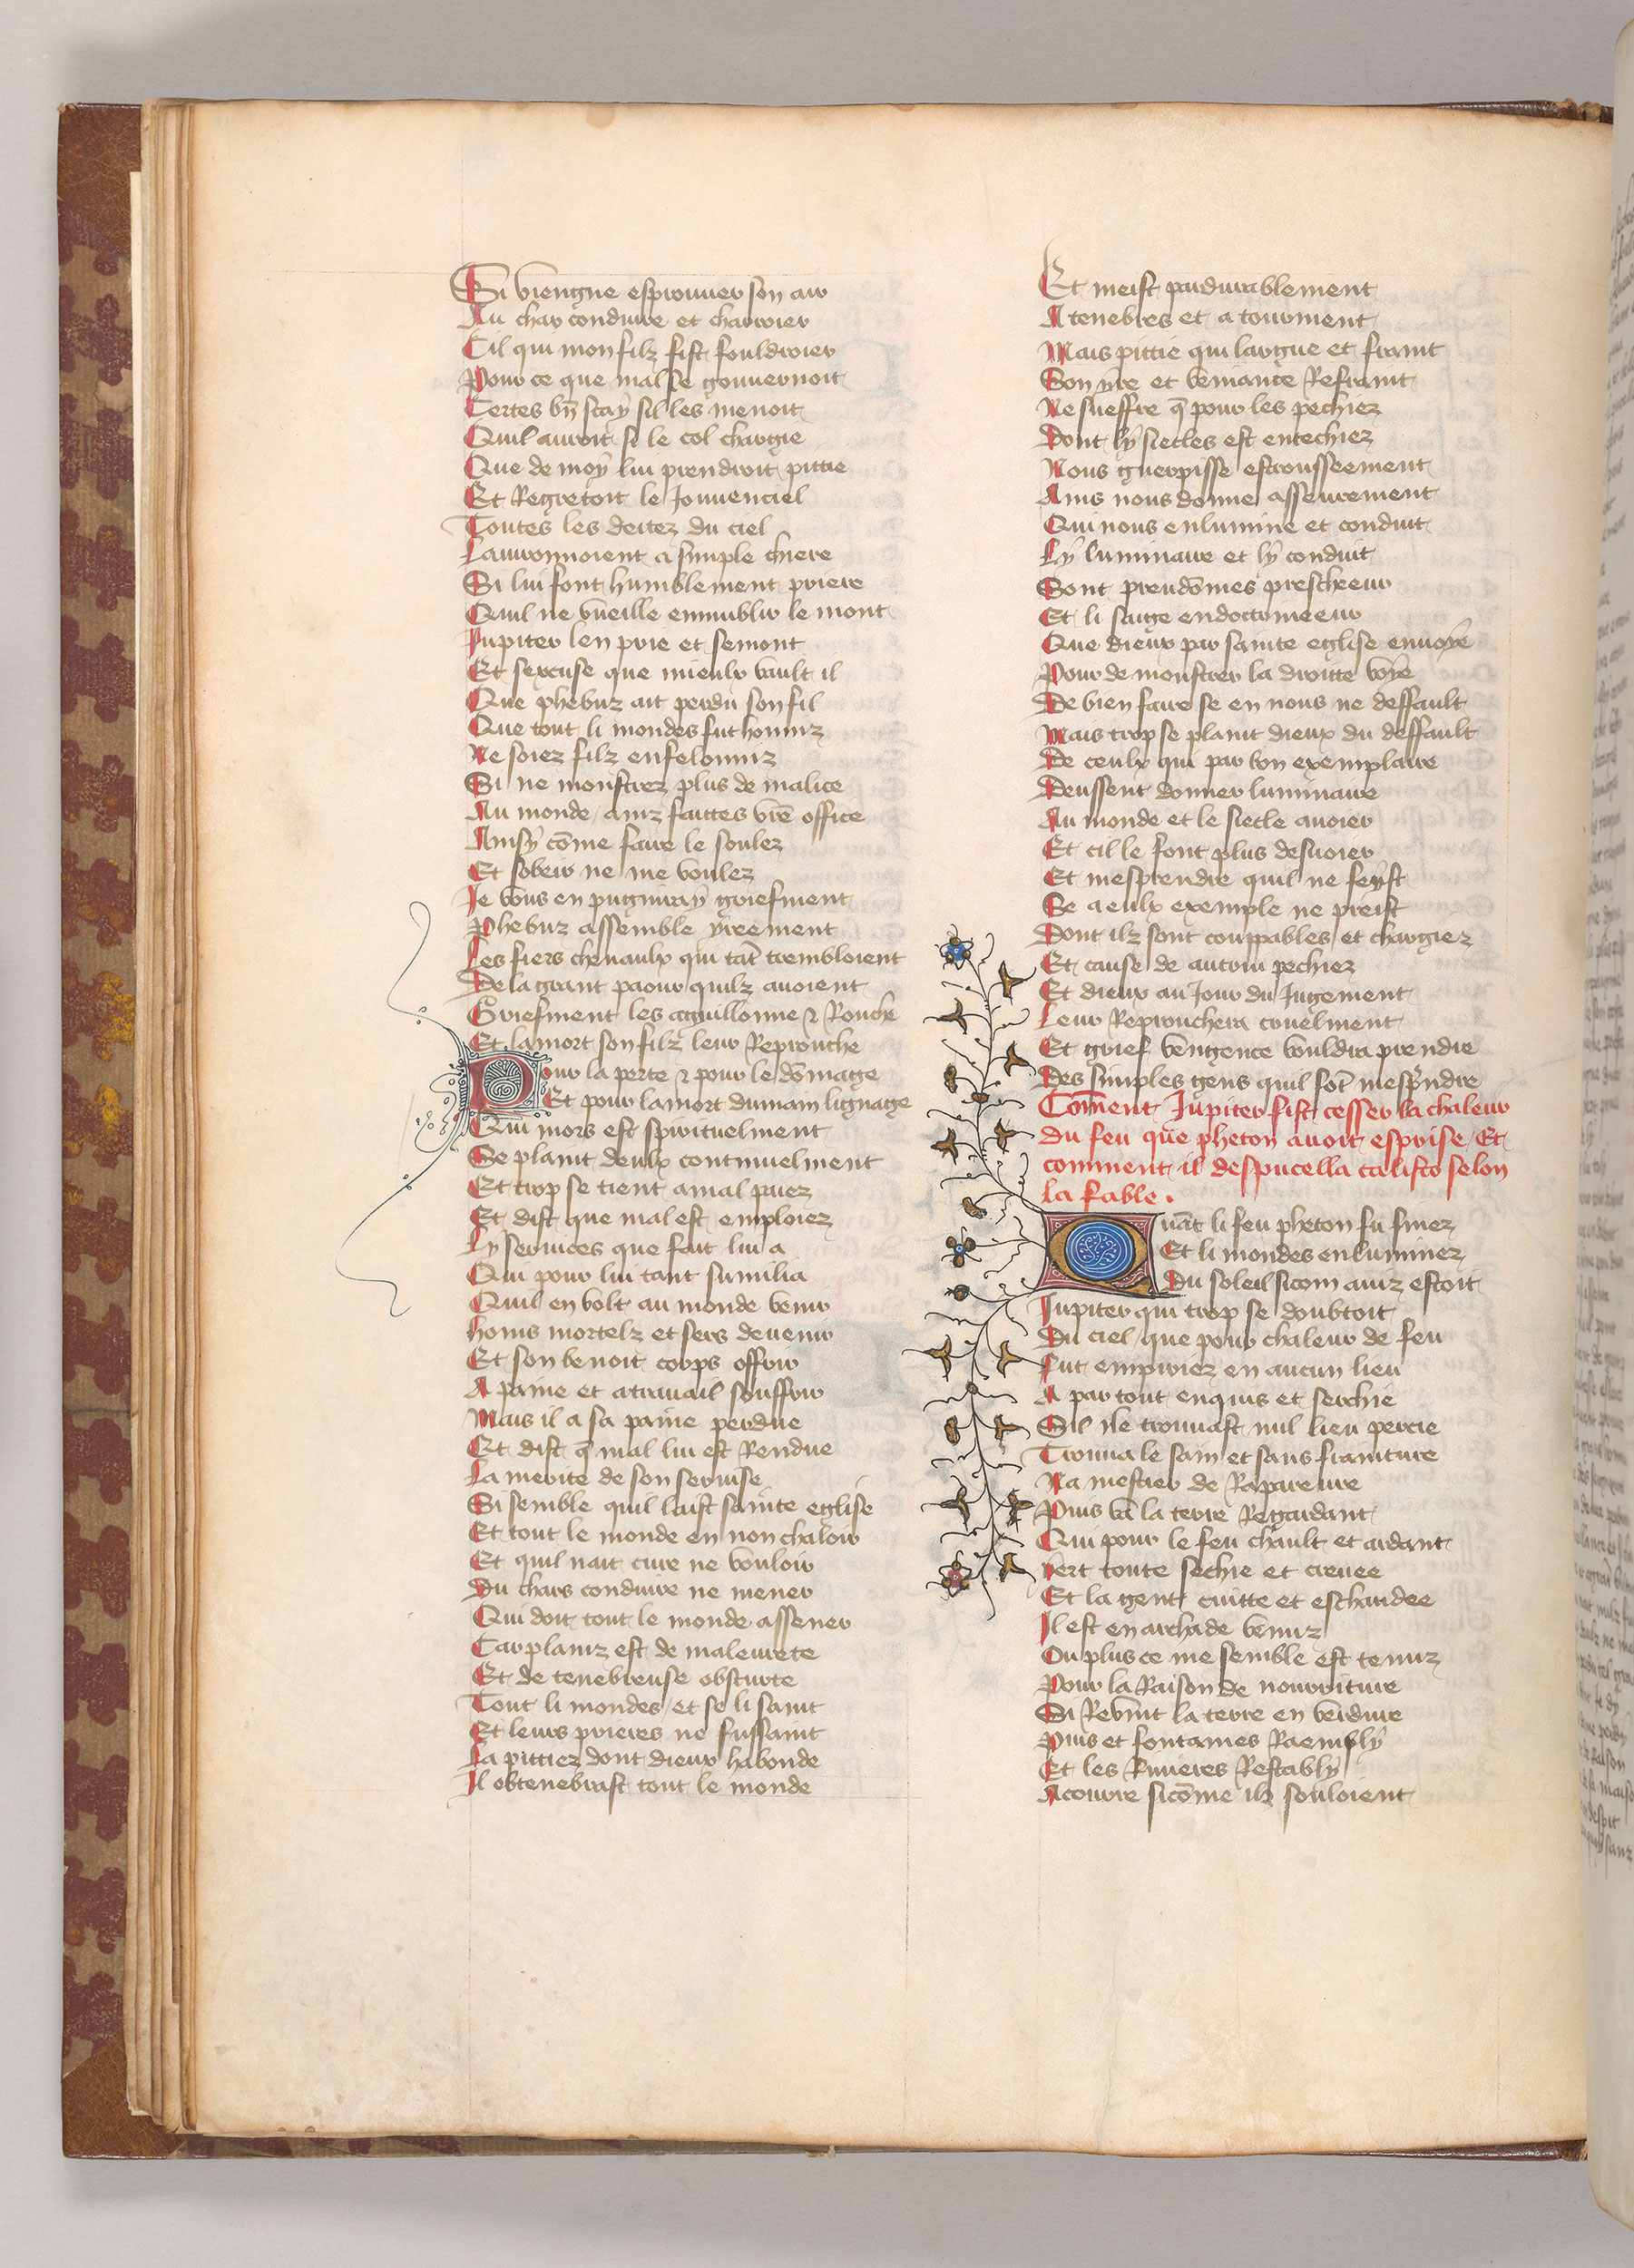 Si viengne esprouver son air
Au char conduire et charroier
Cil qui mon filz fist fouldroier
Pour ce que mal se gouvernoit
Certes bn̄ scay sil les menoit
Quil auroit si le col chargie
Que de moy lui prendroit pittie
Et Regretoit le Jouvenciel
Toutes les deitez du ciel
Lavironnoient a simple chiere
Si lui font humblement priere
Quil ne vueille ennublir le mont
Jupiter len prie et semont
Et sexcuse que mieulx vault il
Que phebuz ait perdu son fil
Que tout li mondes fut honniz
Ne soiez filz enfelonniz
Si ne monstrez plus de malice
Au monde ainz faittes vrē office
Ainsy cōme faire le soulez
Et sobeir ne me voulez
Je vous en pugniray griefment
Phebuz assemble yreement
Les fiers chevaulx qui tāt trembloient
De la grant paour quilz avoient
Griefment les aguillonne ⁊ Rouche
Et la mort son filz leur Reprouche
Pour la perte ⁊ pour le dōmage
Et pour la mort dumain lignage
Qui mors est spirituelment
Se plaint deulx continuelment
Et trop se tient a mal paiez
Et dist que mal est emploiez
Ly services que fait lui a
Qui pour lui tant sumilia
Quil en volt au monde venir
homs mortelz et sers devenir
Et son benoit corps offrir
A paine et a travail souffrir
Mais il a sa paine perdue
Et dist q̄ mal lui est Rendue
La merite de son servise
Si semble quil laist sainte eglise
Et tout le monde en non chaloir
Et quil nait cure ne vouloir
Du chars conduire ne mener
Qui doit tout le monde assener
Car plainz est de maleurete
Et de tenebreuse obscurte
Tout li mondes et se li saint
Et leurs prieres ne fussaint
La pittiez dont dieux habonde
Il obtenebrast tout le monde
Et meist pardurablement
A tenebres et a tourment
Mais pittie qui largue et fraint
Son yre et veniance Refraint
Ne sueffre q̄ pour les pechiez
Dont ly siecles est entechiez
Nous guerpisse estrousseement
Ains nous donne asseurement
Qui nous enlumine et conduit
Ly luminaire et ly conduit
Sont preudōmes prescheeur
Et li saige endoctrineeur
Que dieux par sainte eglise envoye
Pour demonstrer la droitte voye
De bien faire se en nous ne deffault
Mais trop se plaint dieux du deffault
De ceulx qui par bon exemplaire
Deussent donner luminaire
Au monde et le siecle avoier
Et cil le font plus desvoier
Et mesprendre quil ne feyst
Se a eulx exemple ne preist
Dont ilz sont couppables et chargiez
Et cause de autrui pechiez
Et dieux au Jour du Jugement
Leur Reprouchera cruelment
Et grief vengence vouldra prendre
Des simples gens quil fōt mesprēdre
Cōment Jupiter fist cesser la chaleur
du feu que pheton avoit esprise / Et
comment il despucella calisto selon
la fable .
Quāt li feu pheton fu finez
Et li mondes enluminez
Du soleil sicom ainz estoit
Jupiter qui trop se doubtoit
Du ciel / que pour chaleur de feu
Fut empiriez en aucun lieu
A par tout enquis et serchie
Sil ne trouvast nul lieu percie
Trouva le sain et sans frainture
Na mestier de Rapareure
Puis va la terre Regardant
Qui pour le feu chault et ardant
Yert toute sechie et crevee
Et la gent cuitte et eschaudee
Il est en archade venuz
Ou plus ce me semble est tenuz
Pour la Raison de nourriture
Si Revint la terre en verdure
Puis et fontaines Raemply
Et les Rivieres Restably
A courre sicōme ilz souloient